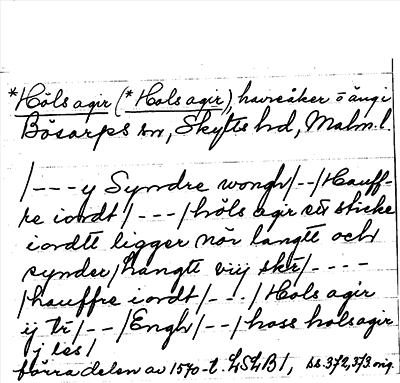 *Höls agir (*Hols agir), havreåker o äng i
Bösarps sn, Skytts hd, Malm. l.
/---y Syndre wongh/--/Hauff-
re iordt/---/höls agir ett sticke
iordtt ligger nör langtt och
synder/hangtt viij skr/----
/hauffre iordt/---/Hols agir
ij tr/--/Engh/--/hoss holsagir
j les/
förra delen av 1570-t. LSLB1, ss. 372, 373 orig.